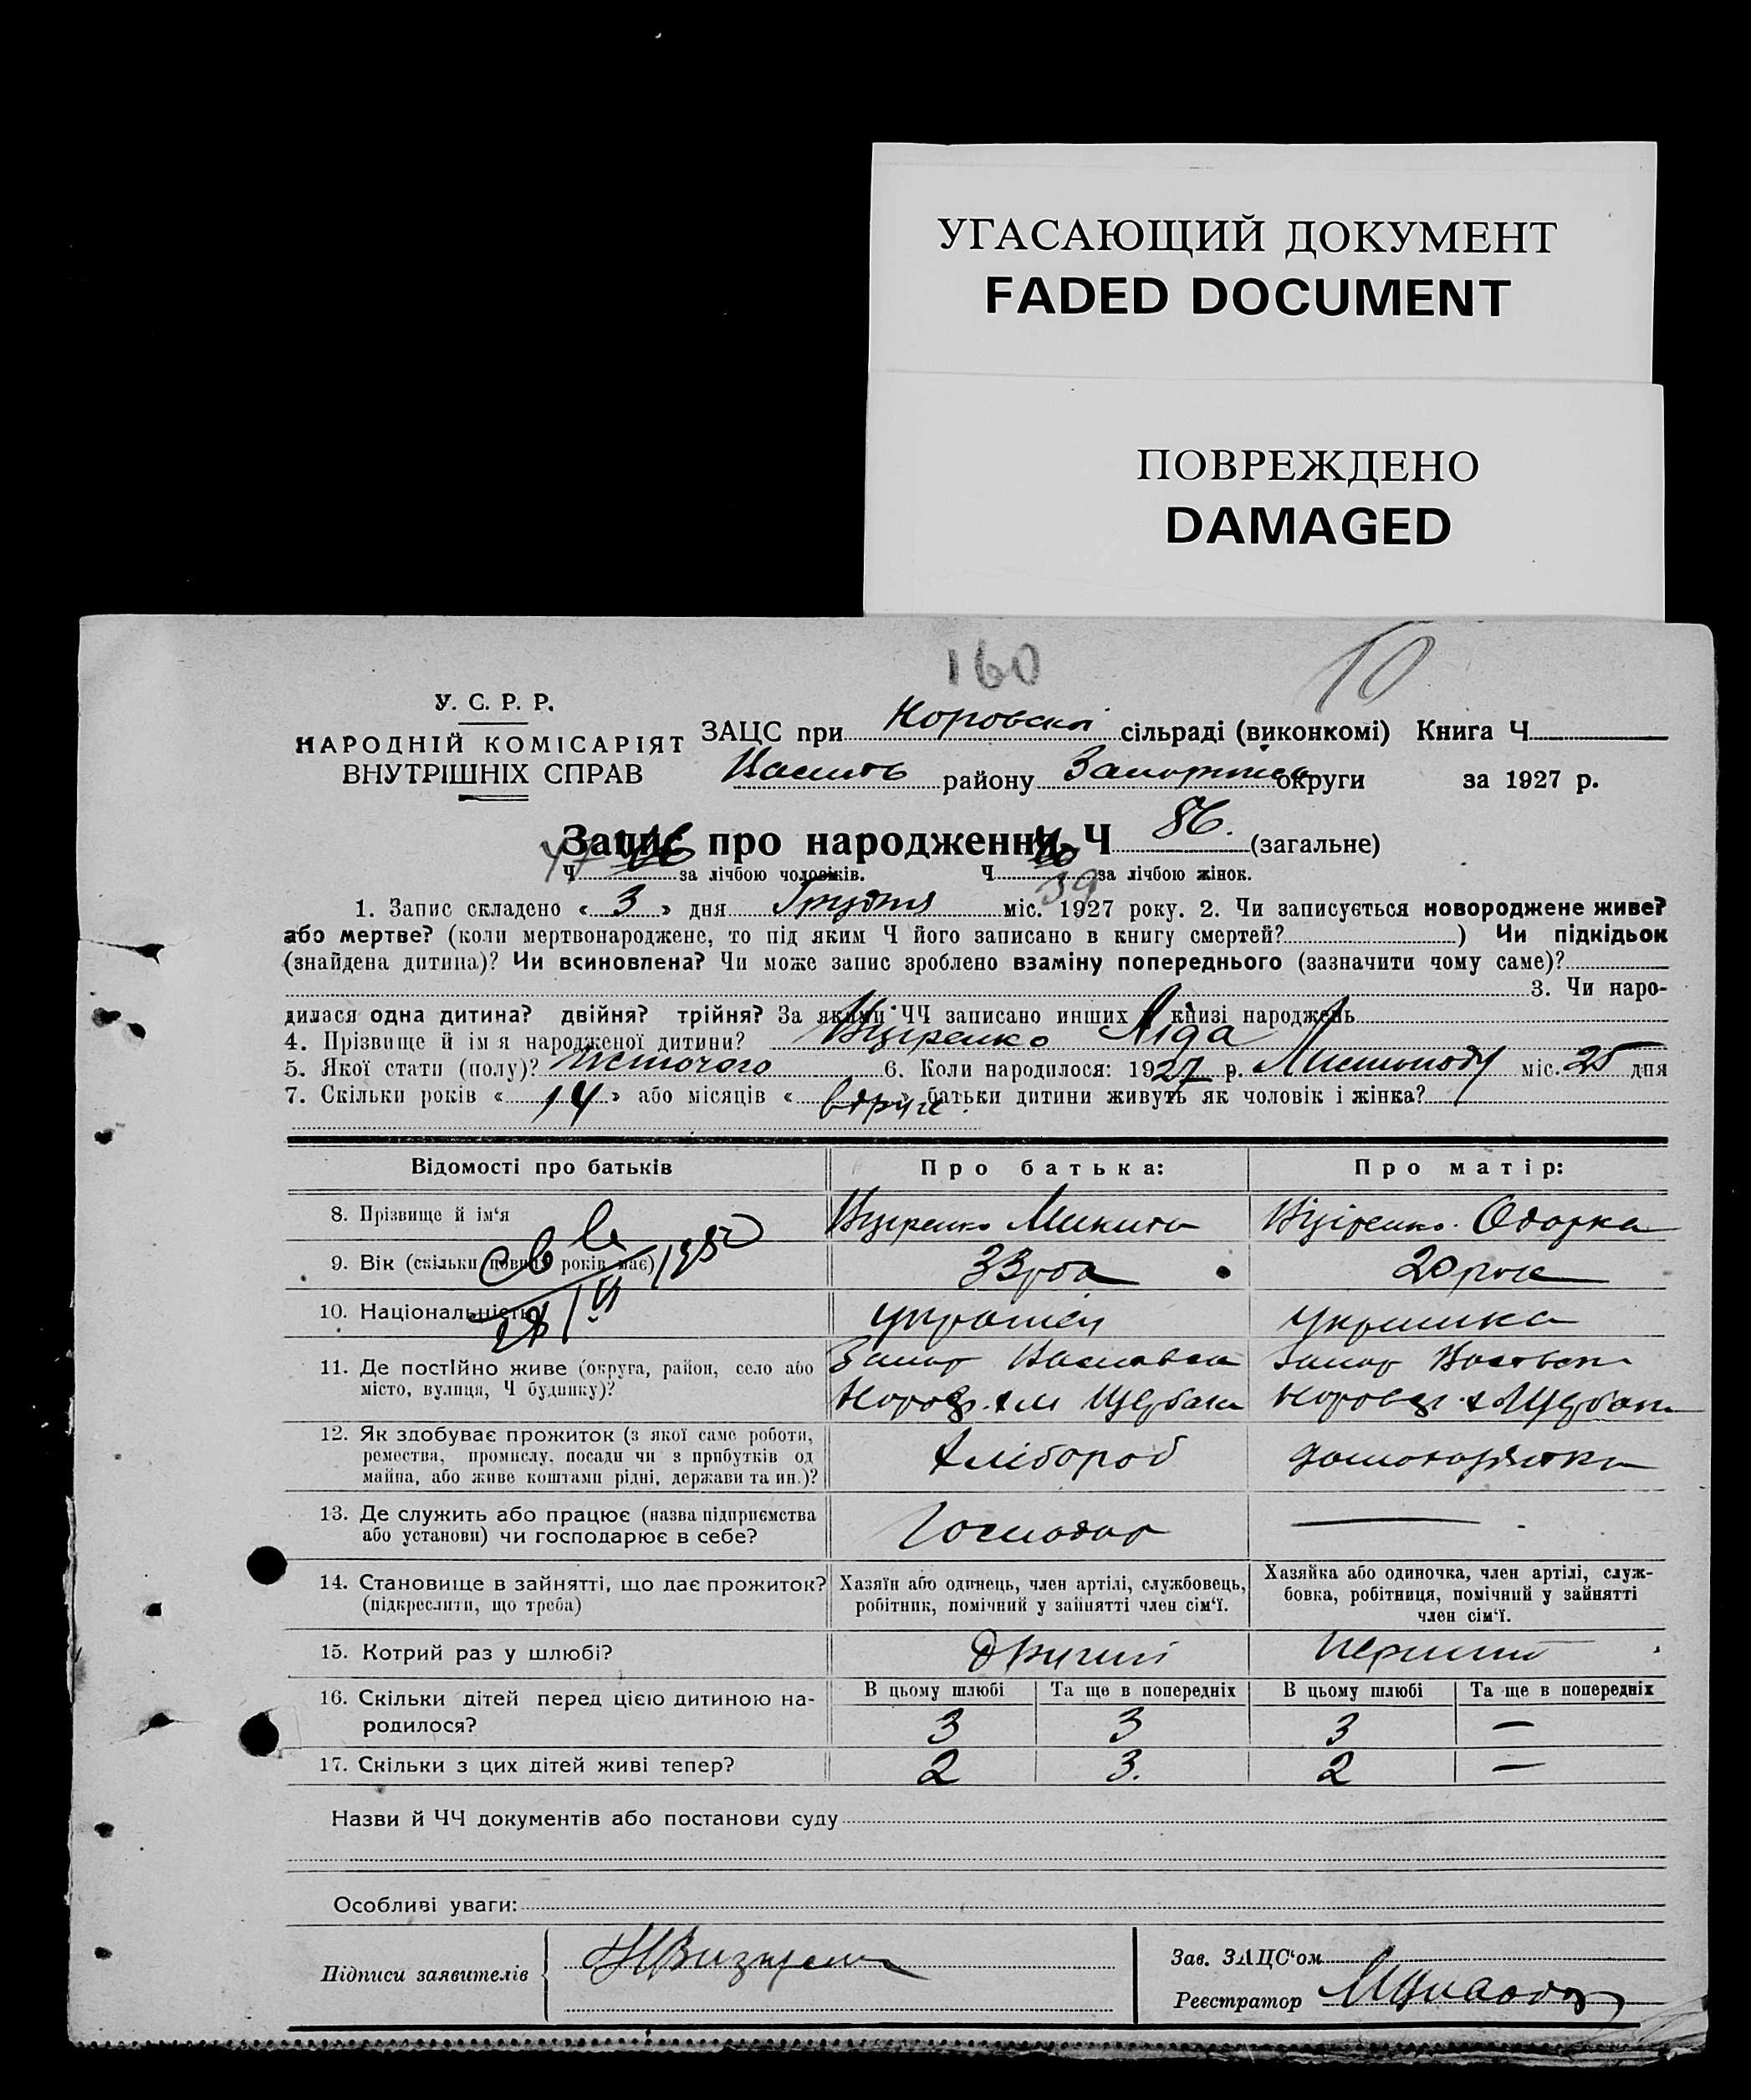 УГАСАЮЩИЙ ДОКУМЕНТ
FADED DOCUMENT
ПОВРЕЖДЕНО
DAMAGED
160
У. С. Р. Р.
НАРОДНІЙ КОМІСАРІЯТ
ВНУТРІШНІХ СПРАВ
ЗАЦС при сільраді (виконкомі) Книга Ч
району округи за 1927 р.
Запис про народження Ч 86. (загальне)
Ч 47 за лічбою чоловіків. Ч 39 за лічбою жінок.
1. Запис складено « 3 » дня Грудня міс. 1927 року. 2. Чи записується новороджене живе?
або мертве? (коли мертвонароджене, то під яким Ч його записано в книгу смертей? ) Чи підкідьок
(знайдена дитина)? Чи всиновлена? Чи може запис зроблено взаміну попереднього (зазначити чому саме)?
3. Чи наро-
дилася одна дитина? двійня? трійня? За якими ЧЧ записано инших в книзі народжень
4. Прізвище й ім я народженої дитини? Ліда
5. Якої стати (полу)? 6. Коли народилося: 1927 р. Листопаду міс. 25 дня
7. Скільки років « 14 » або місяців « » батьки дитини живуть як чоловік і жінка?
Відомості про батьків Про батька: Про матір:
8. Прізвище й ім‘я Микита Одарка
9. Вік (скільки повних років має) 33 20
10. Національність українка
11. Де постійно живе (округа, район, село або
місто, вулиця, Ч будинку)?
12. Як здобуває прожиток (з якої саме роботи,
ремества, промислу, посади чи з прибутків од
майна, або живе коштами рідні, держави та ин.)?
хлібороб домохазяйка
13. Де служить або працює (назва підприємства
або установи) чи господарює в себе?
Господар —
14. Становище в зайнятті, що дає прожиток?
(підкреслити, що треба)
Хазяїн або одинець, член артілі, службовець,
робітник, помічний у зайнятті член сім‘ї.
Хазяйка або одиночка, член артілі, служ-
бовка, робітниця, помічний у зайнятті
член сім‘ї.
15. Котрий раз у шлюбі? другий перший
16. Скільки дітей перед цією дитиною на-
родилося?
В цьому шлюбі Та ще в попередніх В цьому шлюбі Та ще в попередніх
3 3 3 —
17. Скільки з цих дітей живі тепер? 2 3. 2 —
Назви й ЧЧ документів або постанови суду
Особливі уваги:
Підписи заявителів
Зав. ЗАЦС‘ом
Реєстратор